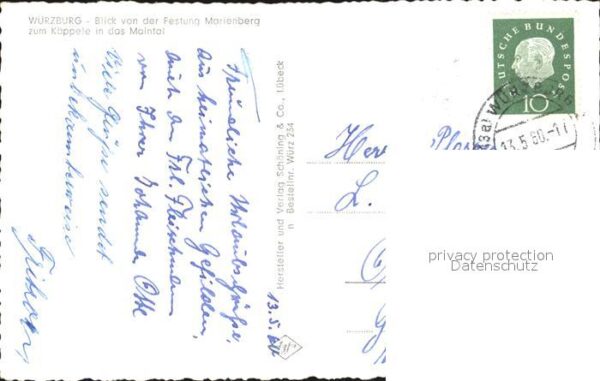 WÜRZBURG - Blick von der Festung Marienberg
zum Käppele in das Maintal
Freundliche Urlaubsgrüße
aus heimatlichen Gefilden,
auch an Frl. Fleischmann
von Ihrer Johanna
Viele Grüße sendet
unbekannterweise
13.5.60
Hersteller und Verlag Schöning & Co., Lübeck
n Bestellnr. Würz 234
DEUTSCHE BUNDESPOST
10
13.5.60.-11
Herr
L.
privacy protection
Datenschutz